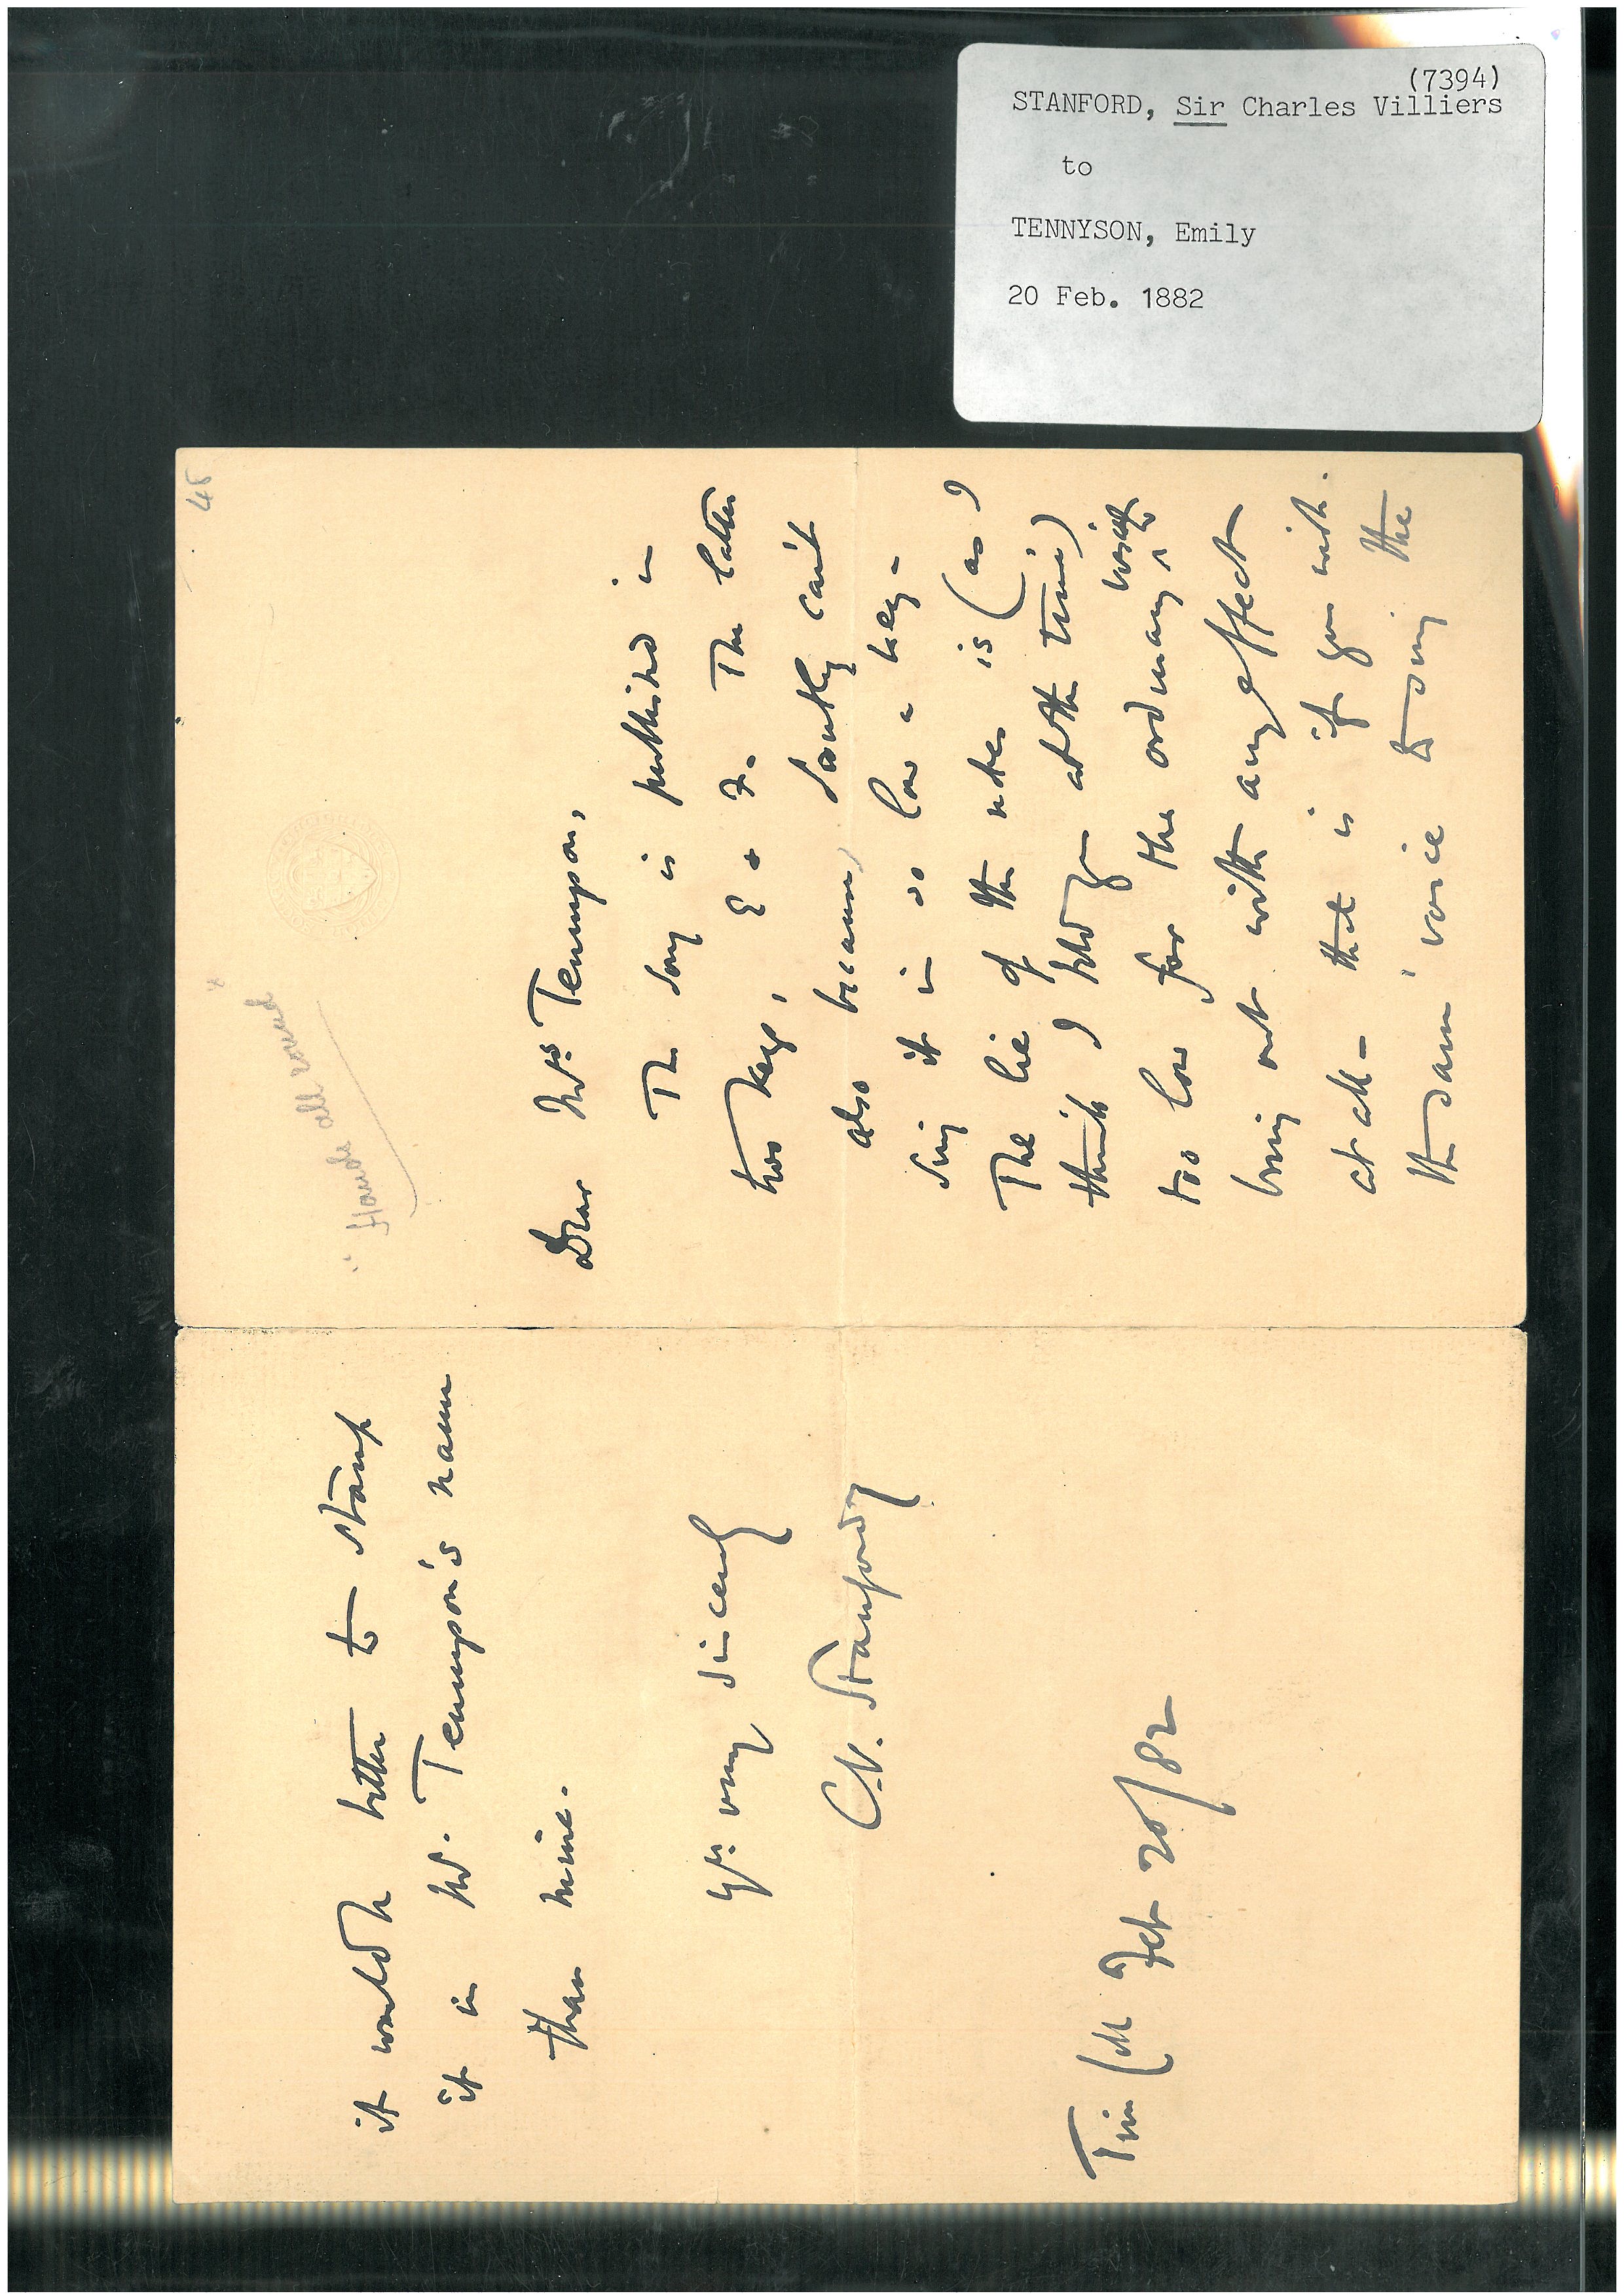 (7394)
STANFORD, Sir Charles Villiers
to
TENNYSON, Emily
20 Feb. 1882
45
"Hands all round"
Dear Mrs Tennyson,
The song is published in
two keys, E & F. The latter
also because, Santley can't
sing it in so low a key -
The lie of the notes is (as I
think I told you at the time)
too low for the ordinary voice to
bring out with any effect
at all - that is if you wish
the same voice to sing the
it would be better to stamp
it in Mr. Tennyson's name
than mine.
Yrs very sincerely
C.V. Stanford
Trin Coll Feb 20/82